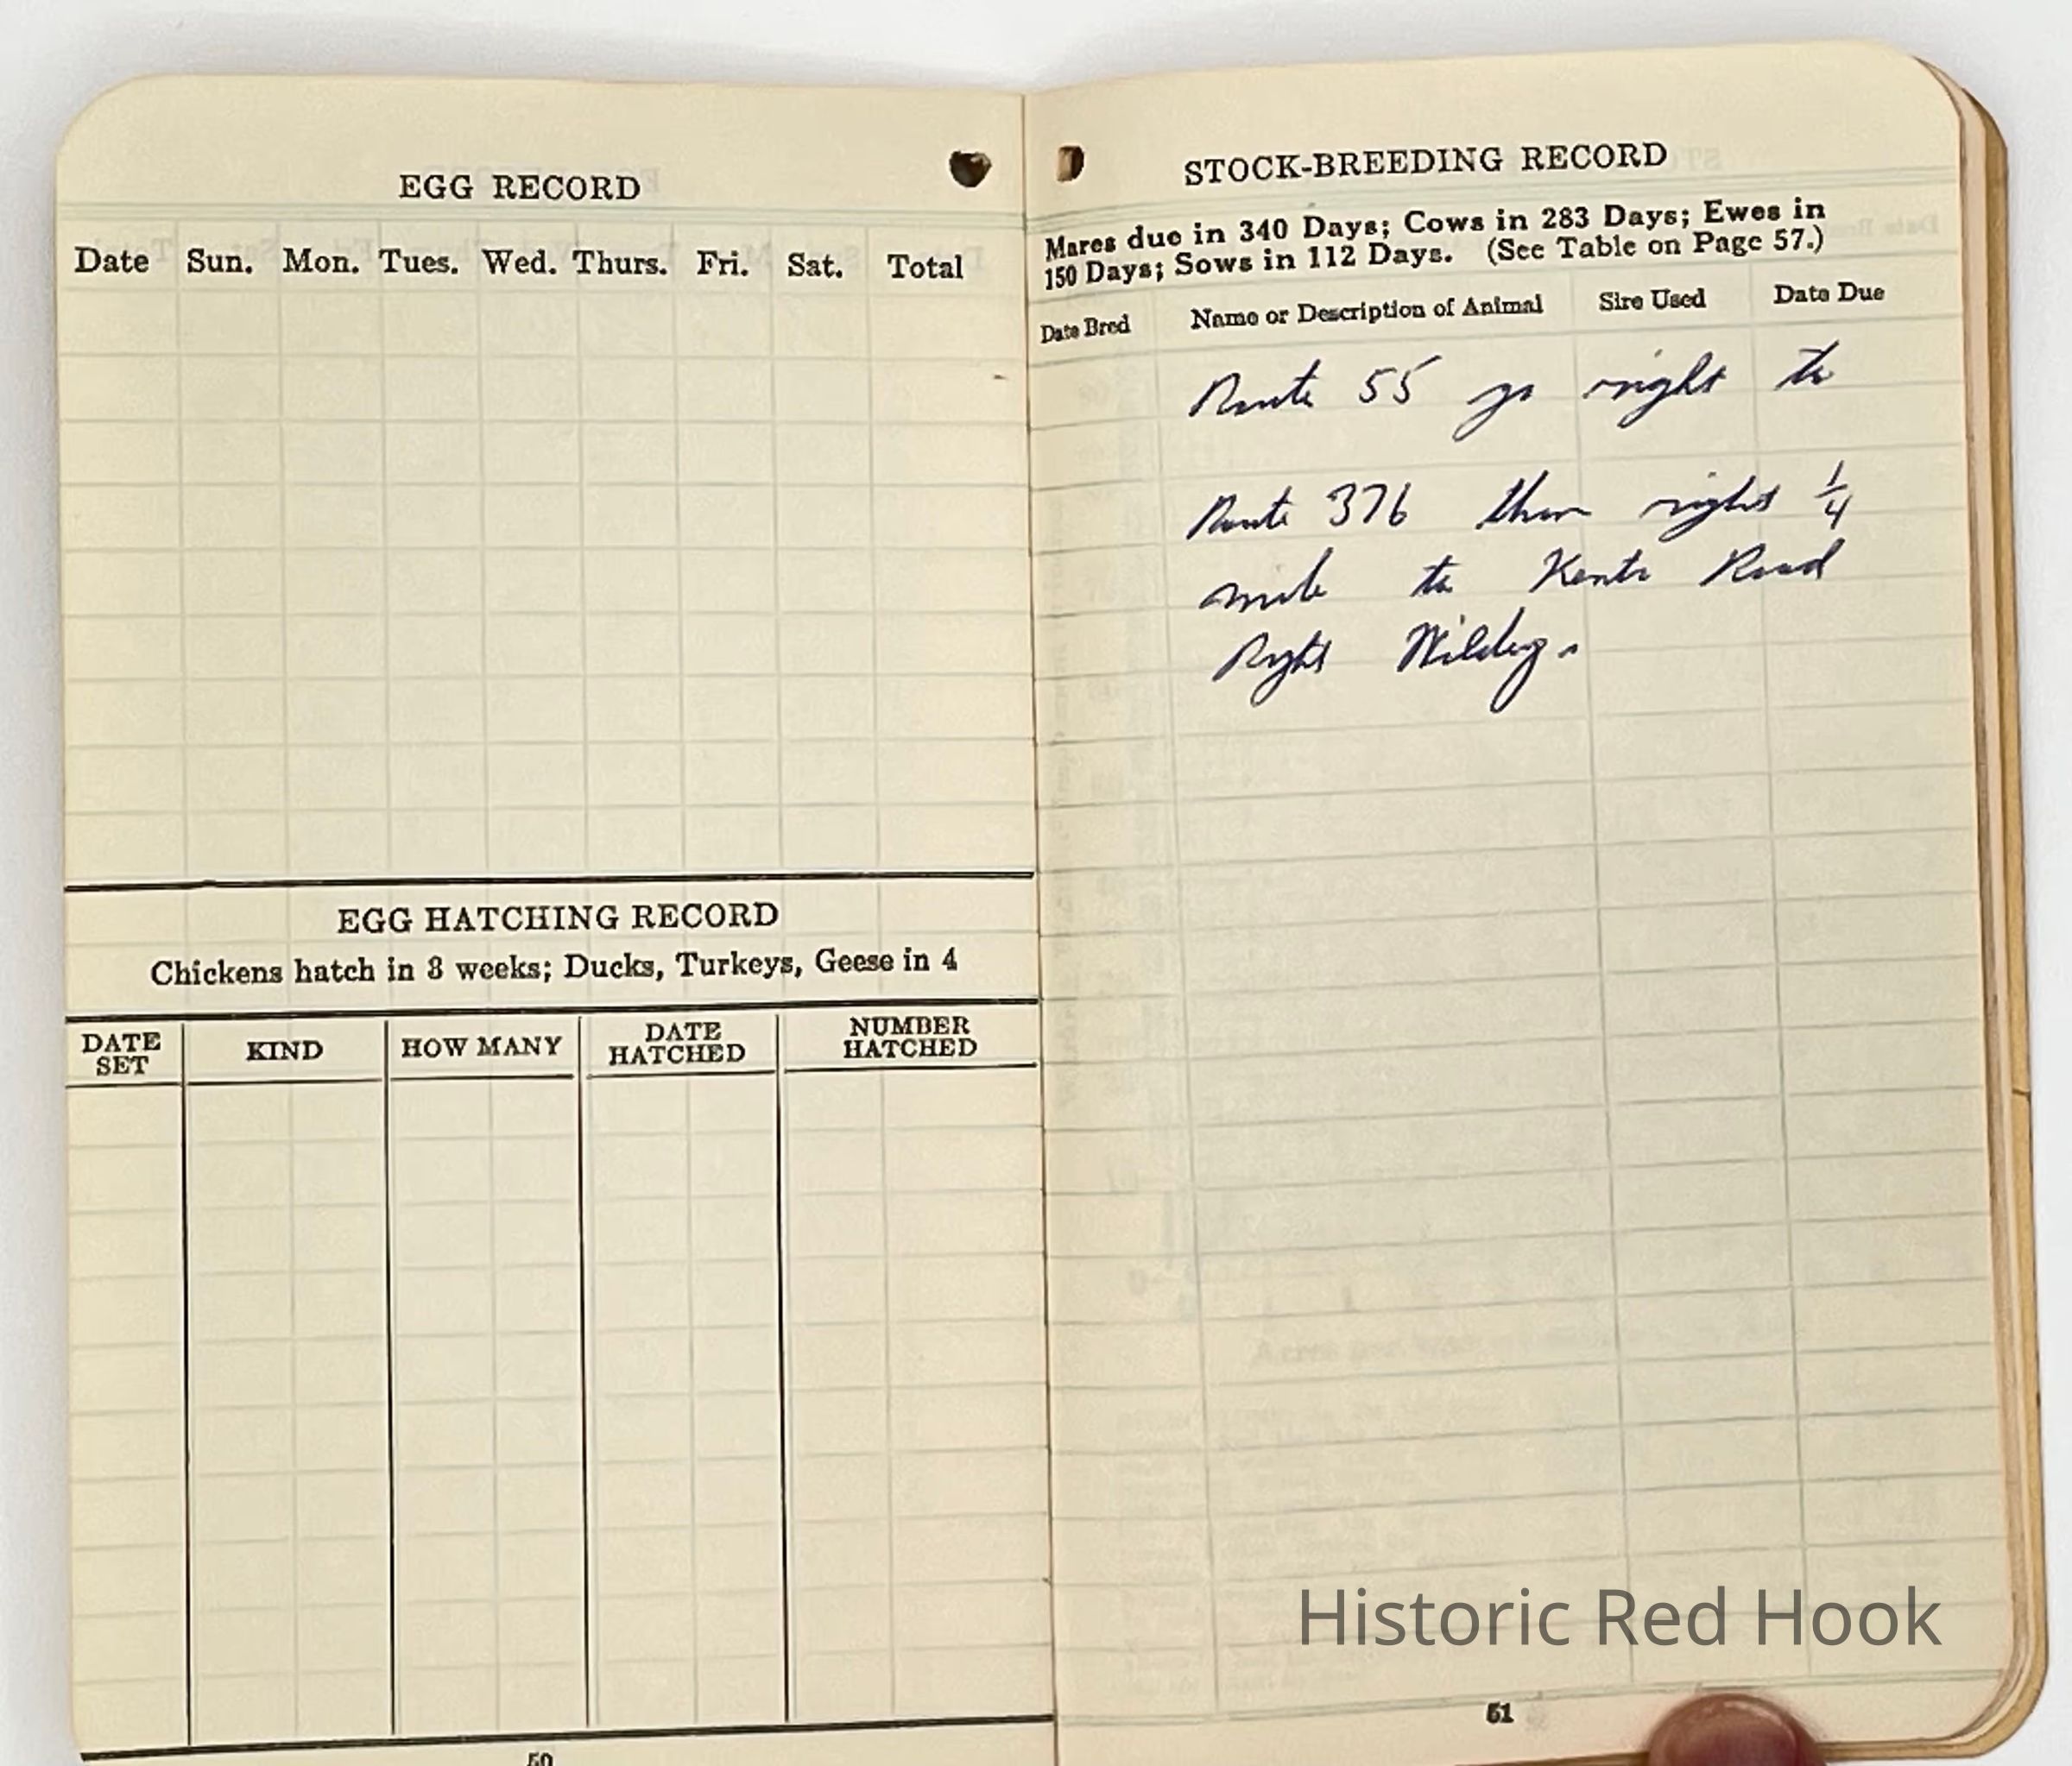 EGG RECORD
Date Sun. Mon. Tues. Wed. Thurs. Fri. Sat. Total
EGG HATCHING RECORD
Chickens hatch in 3 weeks; Ducks, Turkeys, Geese in 4
DATE SET KIND HOW MANY DATE HATCHED NUMBER HATCHED
50
STOCK-BREEDING RECORD
Mares due in 340 Days; Cows in 283 Days; Ewes in
150 Days; Sows in 112 Days. (See Table on Page 57.)
Date Bred Name or Description of Animal Sire Used Date Due
Route 55 go right to
Route 376 then right 1/4
mile to Road
Right
51
Historic Red Hook